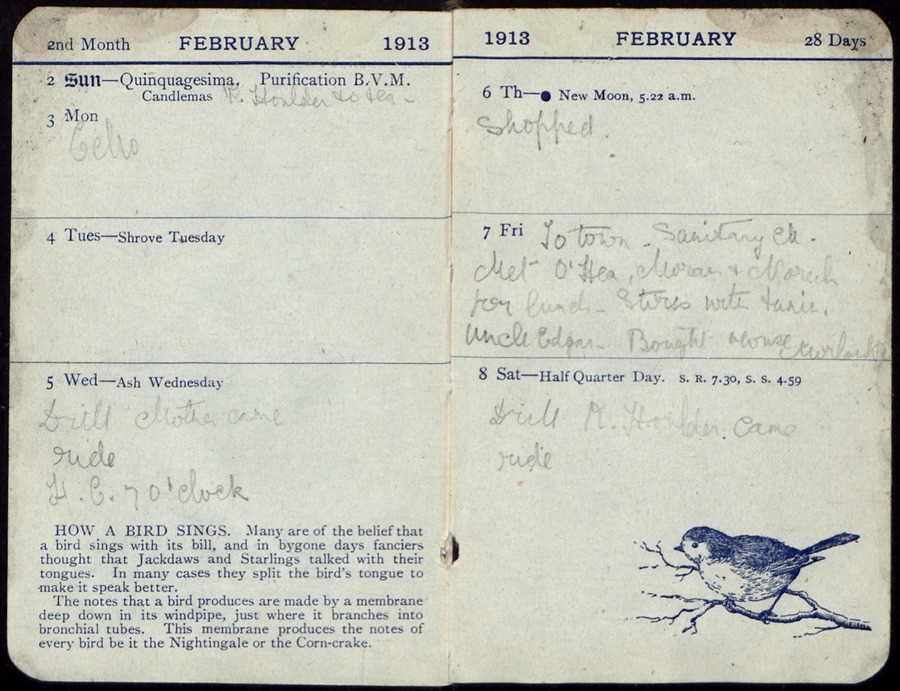 2nd Month FEBRUARY 1913
2 Sun—Quinquagesima. Purification B.V.M.
Candlemas R. Houlder to tea -
3 Mon
4 Tues—Shrove Tuesday
5 Wed—Ash Wednesday
Drill Mother came
ride
H. C. 7 O'clock
HOW A BIRD SINGS. Many are of the belief that
a bird sings with its bill, and in bygone days fanciers
thought that Jackdaws and Starlings talked with their
tongues. In many cases they split the bird's tongue to
make it speak better.
The notes that a bird produces are made by a membrane
deep down in its windpipe, just where it branches into
bronchial tubes. This membrane produces the notes of
every bird be it the Nightingale or the Corn-crake.
1913 FEBRUARY 28 Days
6 Th—● New Moon, 5.22 a.m.
Shopped.
7 Fri To town - Sanitary
Met O'Hea, Moran +
for lunch - Stores with
Uncle Edgar - Bought
8 Sat—Half Quarter Day. S. R. 7.30, S. S. 4.59
Drill R. Houlder came
ride